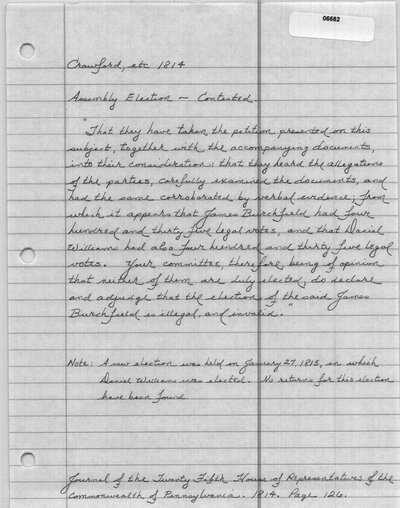 06682
Crawford, etc 1814
Assembly Election - Contested.
"That they have taken the petition presented on this
subject, together with the accompanying documents,
into their consideration: that they heard the allegations
of the parties, carefully examined the documents, and
had the same corroborated by verbal evidence; from
which it appears that James Burchfield had four
hundred and thirty five legal votes, and that Daniel
Williams had also four hundred and thirty five legal
votes. Your committee, therefore, being of opinion
that neither of them are duly elected, do declare
and adjudge that the election of the said James
Burchfield is illegal, and invalid."
Note: A new election was held on January 27, 1815, in which
Daniel Williams was elected. No returns for this election
have been found.
Journal of the Twenty Fifth House of Representatives of the
Commonwealth of Pennsylvania. 1814. Page 126.